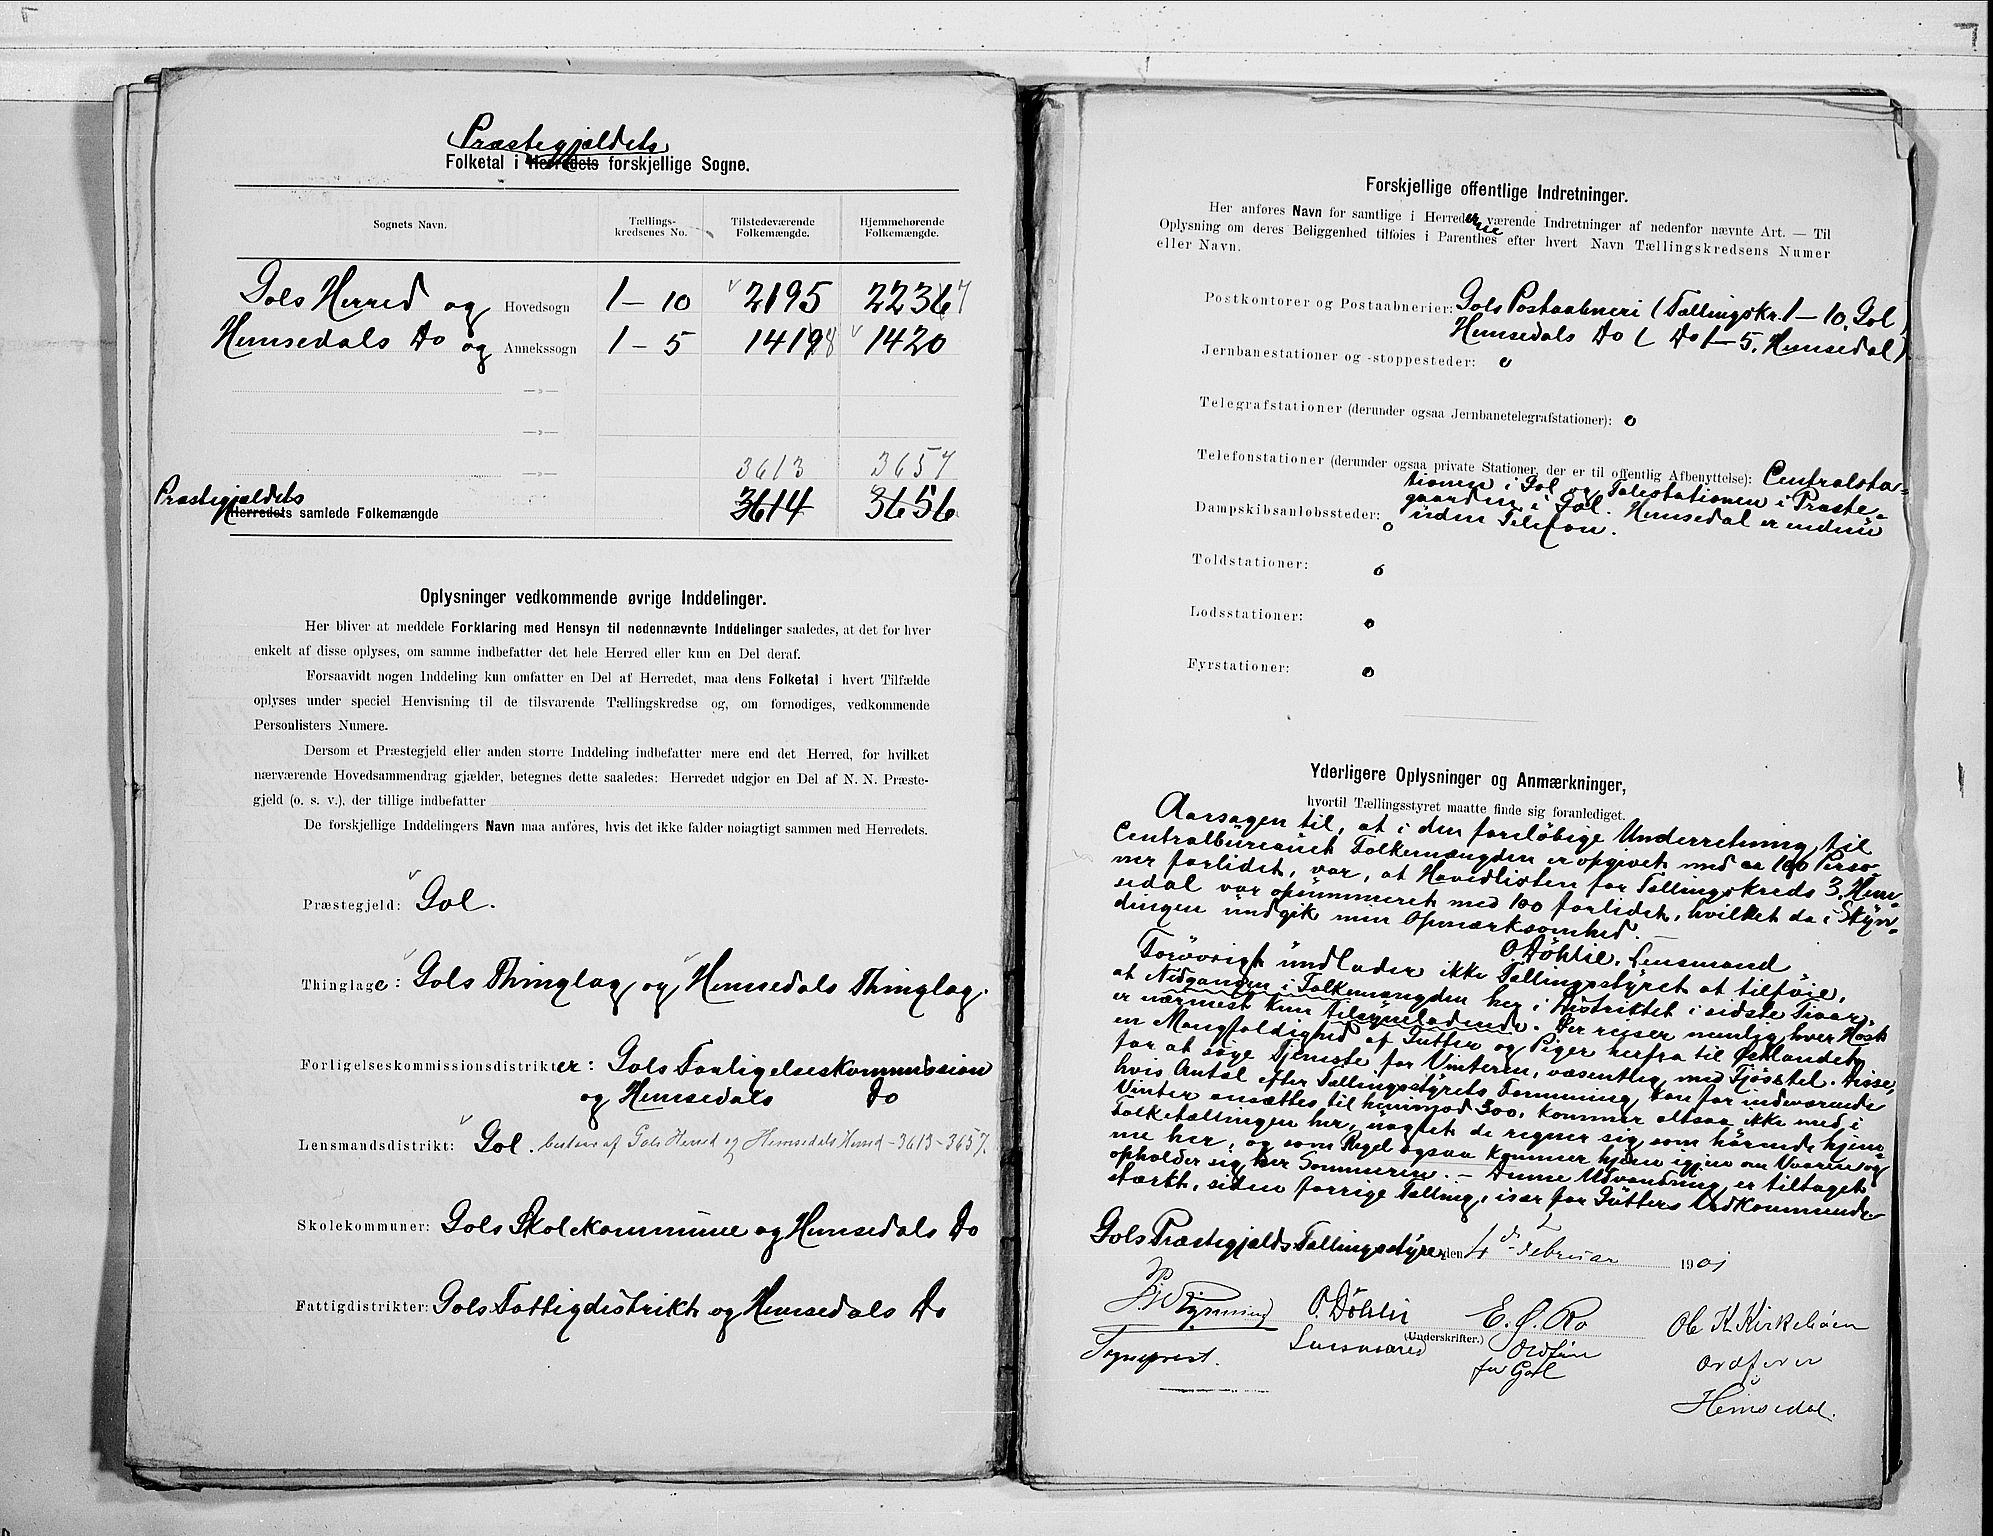 Præstegjældets
Folketal i Herredets forskjellige Sogne.
Sognets Navn.
Tællings-
kredsenes No.
Tilstedeværende
Folkemængde.
Hjemmehørende
Folkemængde.
Gols Herred og Hovedsogn 1 – 10 2195 2236 7
Hemsedals Do og Annekssogn 1 – 5 1419 8 1420
—»—
—»—
—»— 3613 3657
Præstegjældets
Herredets samlede Folkemængde 3614 3656
Oplysninger vedkommende øvrige Inddelinger.
Her bliver at meddele Forklaring med Hensyn til nedennævnte Inddelinger saaledes, at det for hver
enkelt af disse oplyses, om samme indbefatter det hele Herred eller kun en Del deraf.
Forsaavidt nogen Inddeling kun omfatter en Del af Herredet, maa dens Folketal i hvert Tilfælde
oplyses under speciel Henvisning til de tilsvarende Tællingskredse og, om fornødiges, vedkommende
Personlisters Numere.
Dersom et Præstegjeld eller anden større Inddeling indbefatter mere end det Herred, for hvilket
nærværende Hovedsammendrag gjælder, betegnes dette saaledes: Herredet udgjør en Del af N. N. Præste-
gjeld (o. s. v.), der tillige indbefatter
De forskjellige Inddelingers Navn maa anføres, hvis det ikke falder nøiagtigt sammen med Herredets.
Præstegjeld: Gol.
Thinglage: Gols Thinglag og Hemsedals Thinglag.
Forligelseskommissionsdistrikter: Gols Forligelseskommission
og Hemsedals Do
Lensmandsdistrikt: Gol. bestaar af Gols Herred og Hemsedals Herred – 3613 – 3657.
Skolekommuner: Gols Skolekommune og Hemsedals Do
Fattigdistrikter: Gols Fattigdistrikt og Hemsedals Do
Forskjellige offentlige Indretninger.
Her anføres Navn for samtlige i Herrederne værende Indretninger af nedenfor nævnte Art. — Til
Oplysning om deres Beliggenhed tilføies i Parenthes efter hvert Navn Tællingskredsens Numer
eller Navn.
Postkontorer og Postaabnerier: Gols Postaabneri (Tællingskr. 1 – 10, Gol)
Hemsedals Do ( Do 1 – 5, Hemsedal)
Jernbanestationer og -stoppesteder: o
Telegrafstationer (derunder ogsaa Jernbanetelegrafstationer): o
Telefonstationer (derunder ogsaa private Stationer, der er til offentlig Afbenyttelse): Centralsta-
tionen i Gol og Talestationen i Præste-
gaarden i Gol. Hemsedal er endnu
uden Telefon.
Dampskibsanløbssteder: o
Toldstationer: o
Lodsstationer: o
Fyrstationer: o
Yderligere Oplysninger og Anmærkninger,
hvortil Tællingsstyret maatte finde sig foranlediget.
Aarsagen til, at i den foreløbige Underretning til
Centralbureauet Folkemængden er opgivet med ca 100 Perso-
ner forlidet, var, at Hovedlisten for Tællingskreds 3, Hem-
sedal var opsummeret med 100 forlidet, hvilket da i Skyn-
dingen undgik min Opmærksomhed.
O. Døhlie, Lensmand
Forøvrigt undlader ikke Tællingsstyret at tilføie,
at Nedgangen i Folkemængden her i Distriktet i sidste Tiaar
er nærmest kun tilsyneladende. Der reiser nemlig hver Høst
en Mangfoldighed af Gutter og Piger herfra til Østlandet
for at søge Tjeneste for Vinteren, væsentlig med Fjøsstel. Disse,
hvis Antal efter Tællingsstyrets Formening kan for indeværende
Vinter ansættes til henimod 300, kommer altsaa ikke med i
Folketællingen her, uagtet de regner sig som hørende hjem-
me her, og som Regel ogsaa kommer hjem igjen om Vaaren og
opholder sig her Sommeren. – Denne Udvandring er tiltaget
stærkt, siden forrige Tælling, især for Gutters Vedkommende.
Gols Præstegjælds Tællingsstyre den 4de Februar 1901
O. Døhlie E. O. Ro Ole K. Kirkebøen
(Underskrifter.)
Sogneprest. Lensmand Ordfører Ordfører
for Gol Hemsedal.